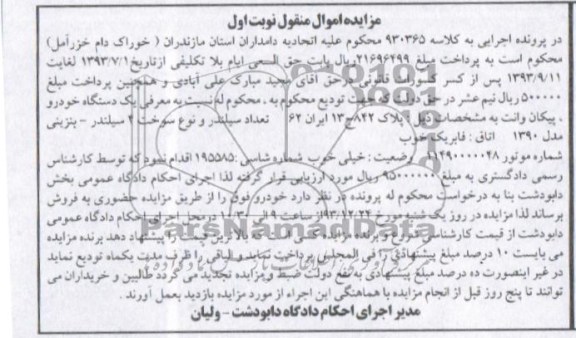 مزایده اموال منقول نوبت اول
در پرونده اجرایی به کلاسه ۹۳۰۳۶۵ محکوم علیه اتحادیه دامداران استان مازندران ( خوراک دام خزرآمل)
محکوم است به پرداخت مبلغ ۲۱۶۹۶۲۹۹ریال بابت حق السعی ایام بلا تکلیفی ازتاریخ۱۳۹۳/۷/۱ لغایت
۱۳۹۳/۹/۱۱ پس از کسر کسورات قانونی درحق آقای مجید مبارک علی آبادی و همچنین پرداخت مبلغ
۵۰۰۰۰۰ ریال نیم عشر در حق دولت که جهت تودیع محکوم به ، محکوم له نسبت به معرفی یک دستگاه خودرو
، پیکان وانت به مشخصات ذیل : پلاک ۸۴۲ج۱۳ ایران ۶۲ تعداد سیلندر و نوع سوخت ۴ سیلندر - بنزینی
مدل ۱۳۹۰ اتاق : فابریک خوب
شماره موتور ۱۱۴۹۰۰۰۰۰۴۸ وضعیت : خیلی خوب شماره شاسی :۱۹۵۵۸۵ اقدام نمود که توسط کارشناس
رسمی دادگستری به مبلغ ۹۵۰۰۰۰۰۰ ریال مورد ارزیابی قرار گرفته لذا اجرای احکام دادگاه عمومی بخش
دابودشت بنا به درخواست محکوم له پرونده در نظر دارد خودرو فوق را از طریق مزایده حضوری به فروش
برساند لذا مزایده در روز یک شنبه مورخ ۹۳/۱۲/۲۴از ساعت ۹ الی ۱۰:۳۰ درمحل اجرای احکام دادگاه عمومی
دابودشت از قیمت کارشناسی شروع و برنده مزایده کسی است که بالاترین قیمت را پیشنهاد دهد برنده مزایده
می بایست ۱۰ درصد مبلغ پیشنهادی را فی المجلس پرداخت نماید و الباقی را ظرف مدت یکماه تودیع نماید
در غیر اینصورت ده درصد مبلغ پیشنهادی به نفع دولت ضبط و مزایده تجدید می گردد طالبین و خریداران می
توانند تا پنج روز قبل از انجام مزایده با هماهنگی این اجراء از مورد مزایده بازدید بعمل آورند .
مدیر اجرای احکام دادگاه دابودشت - ولیان
ParsNamadData